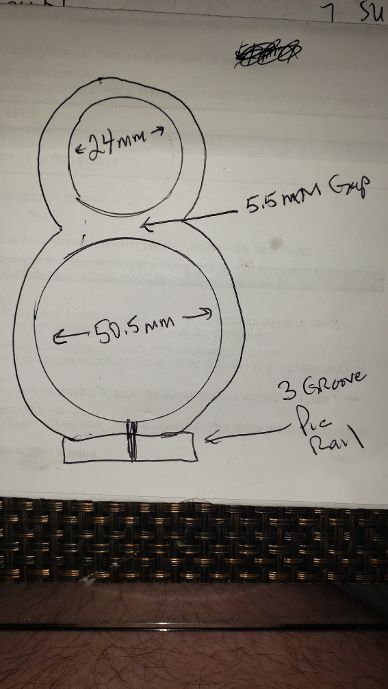 SU
24mm
5.5mm Gap
50.5mm
3 Groove
Pic
Rail